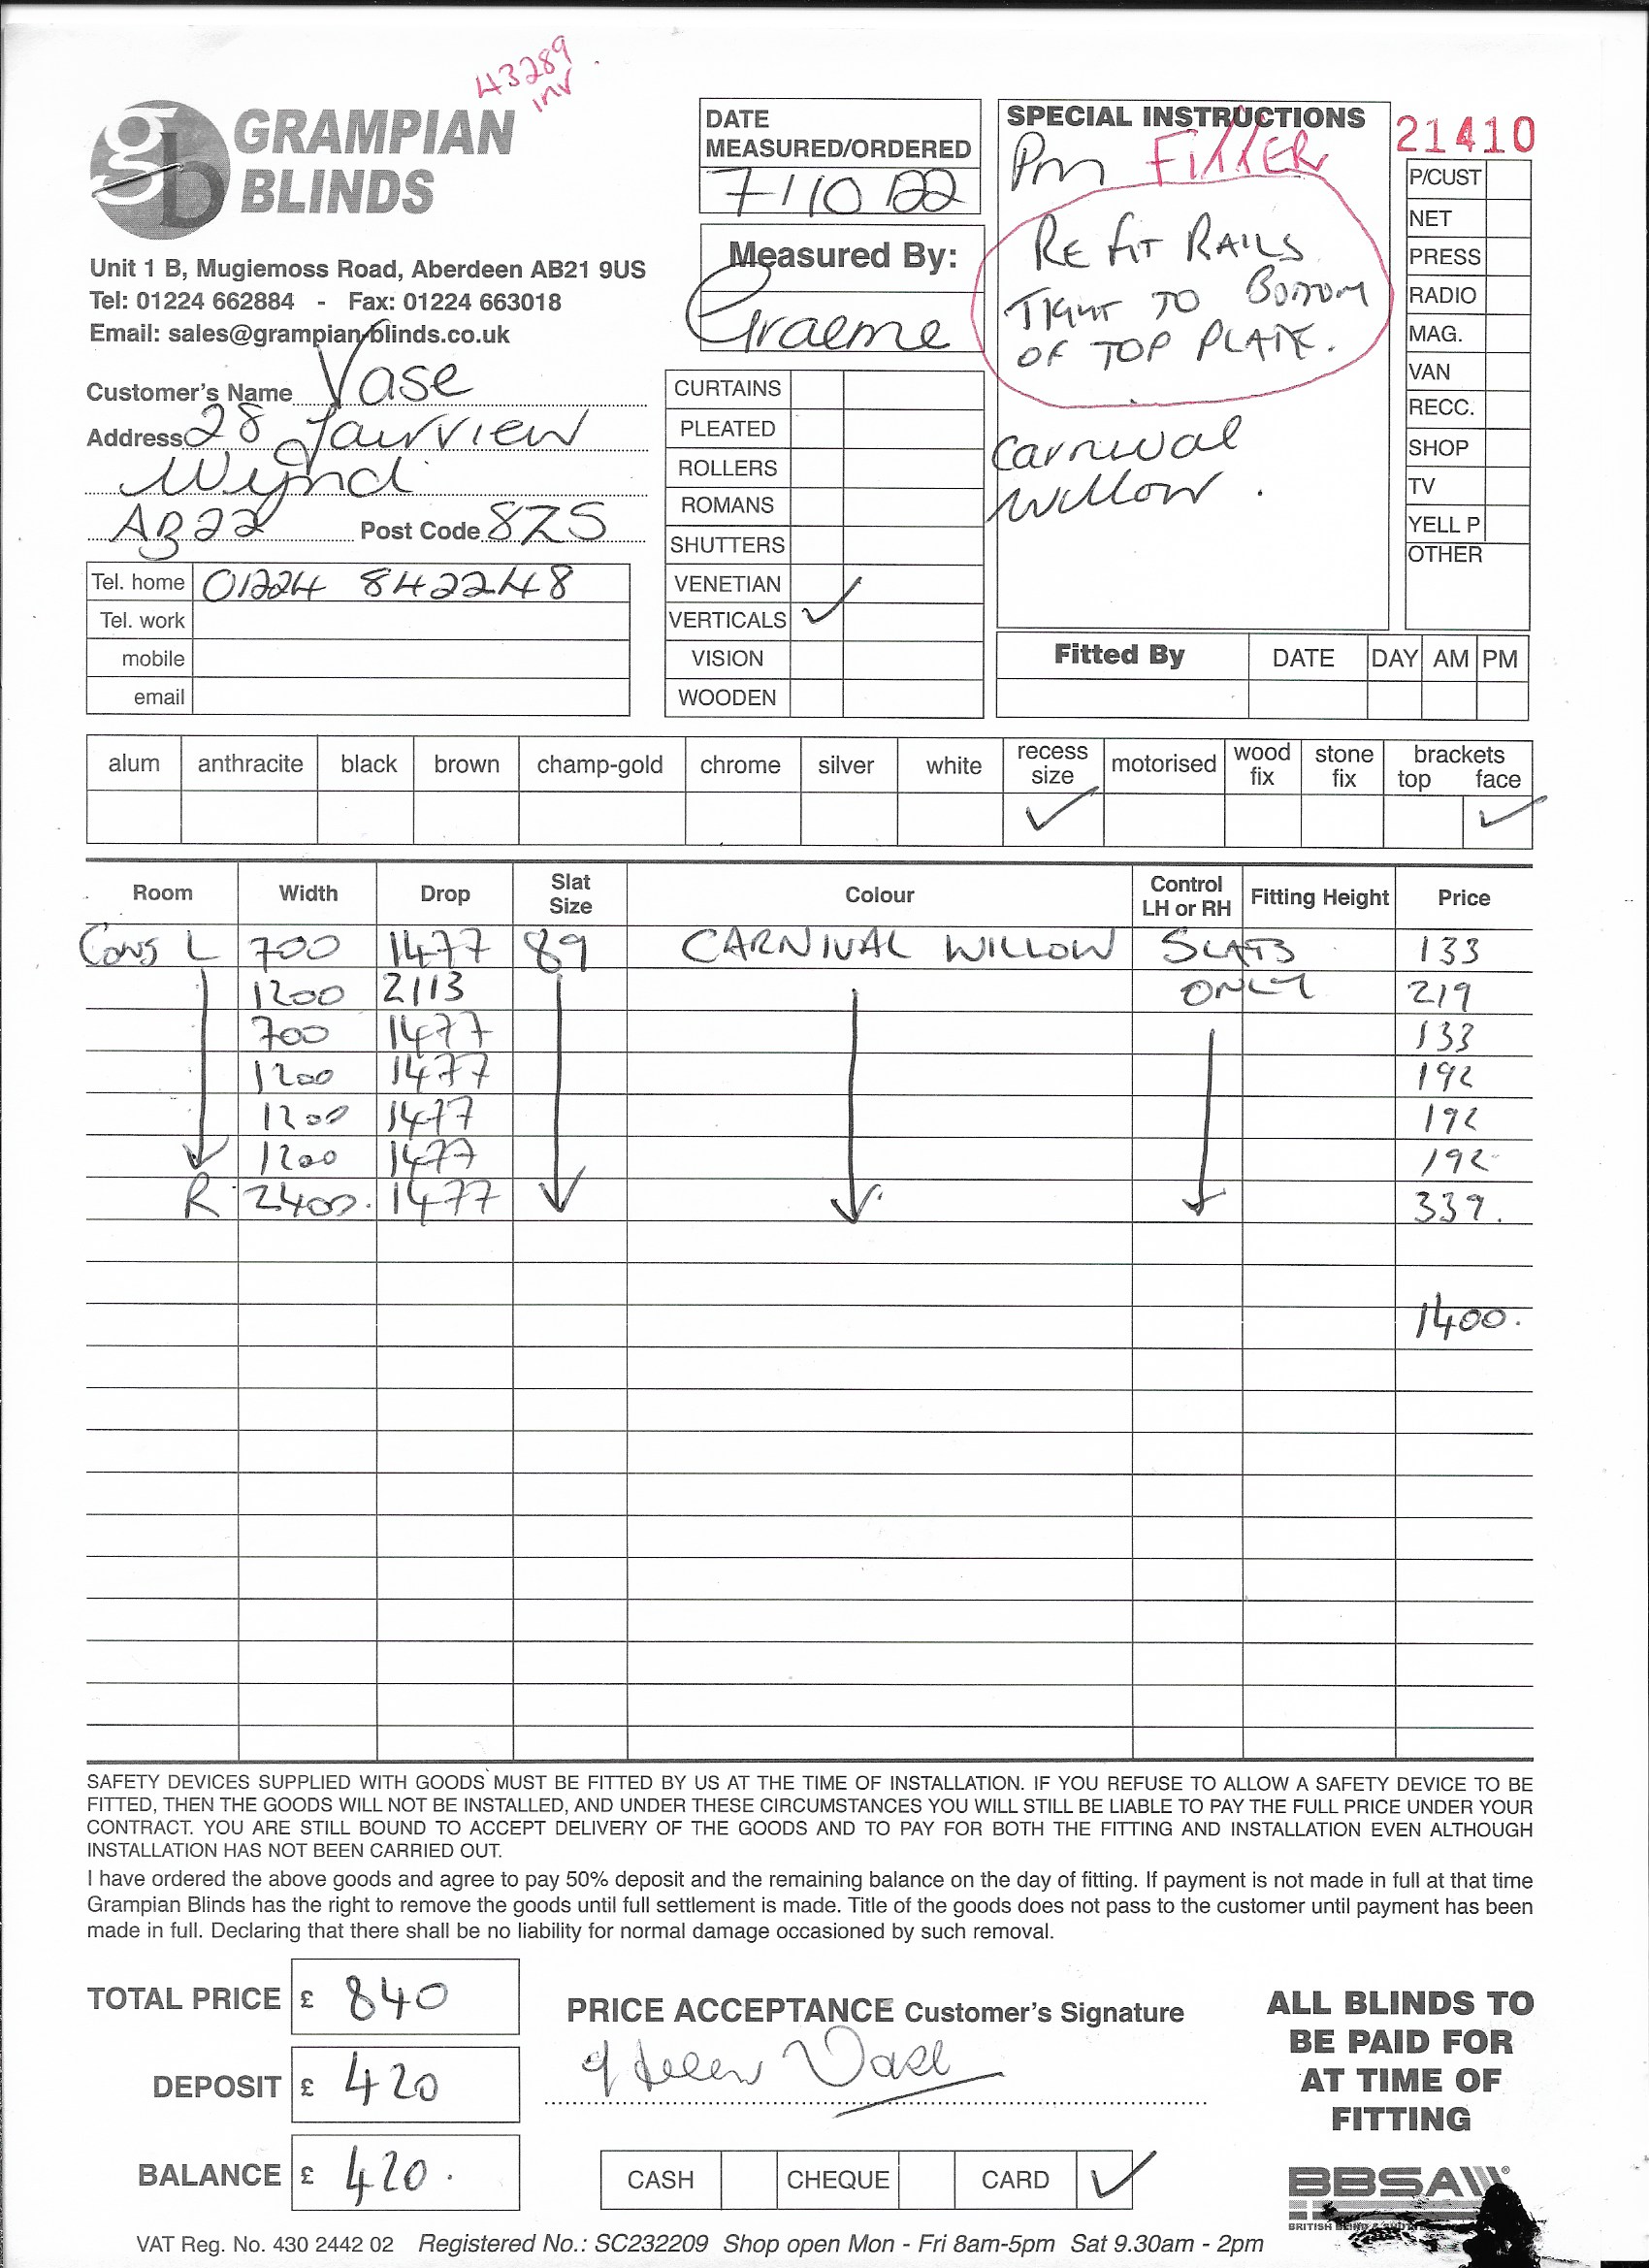 43289
inv
GRAMPIAN
BLINDS
Unit 1 B, Mugiemoss Road, Aberdeen AB21 9US
Tel: 01224 662884 - Fax: 01224 663018
Email: sales@grampian-blinds.co.uk
Customer's Name Vase
Address 28 Fairview
Wynd
AB22 Post Code 8ZS
Tel. home 01224 842248
Tel. work
mobile
email
DATE
MEASURED/ORDERED
7/10/22
Measured By:
Graeme
CURTAINS
PLEATED
ROLLERS
ROMANS
SHUTTERS
VENETIAN
VERTICALS ✓
VISION
WOODEN
SPECIAL INSTRUCTIONS
Pm FITTER
RE FIT RAILS
TIGHT TO BOTTOM
OF TOP PLATE.
Carnival
Willow.
21410
P/CUST
NET
PRESS
RADIO
MAG.
VAN
RECC.
SHOP
TV
YELL P
OTHER
Fitted By DATE DAY AM PM
alum anthracite black brown champ-gold chrome silver white recess size motorised wood fix stone fix brackets top face
✓ ✓
Room Width Drop Slat Size Colour Control LH or RH Fitting Height Price
Cons L 700 1477 89 CARNIVAL WILLOW SLATS 133
1200 2113 ONLY 219
700 1477 133
1200 1477 192
1200 1477 192
1200 1477 192
R 2400 1477 339.
1400.
SAFETY DEVICES SUPPLIED WITH GOODS MUST BE FITTED BY US AT THE TIME OF INSTALLATION. IF YOU REFUSE TO ALLOW A SAFETY DEVICE TO BE
FITTED, THEN THE GOODS WILL NOT BE INSTALLED, AND UNDER THESE CIRCUMSTANCES YOU WILL STILL BE LIABLE TO PAY THE FULL PRICE UNDER YOUR
CONTRACT. YOU ARE STILL BOUND TO ACCEPT DELIVERY OF THE GOODS AND TO PAY FOR BOTH THE FITTING AND INSTALLATION EVEN ALTHOUGH
INSTALLATION HAS NOT BEEN CARRIED OUT.
I have ordered the above goods and agree to pay 50% deposit and the remaining balance on the day of fitting. If payment is not made in full at that time
Grampian Blinds has the right to remove the goods until full settlement is made. Title of the goods does not pass to the customer until payment has been
made in full. Declaring that there shall be no liability for normal damage occasioned by such removal.
TOTAL PRICE £ 840
DEPOSIT £ 420
BALANCE £ 420.
PRICE ACCEPTANCE Customer's Signature
Helen Vase
CASH CHEQUE CARD ✓
ALL BLINDS TO
BE PAID FOR
AT TIME OF
FITTING
BBSA
BRITISH BLIND &
VAT Reg. No. 430 2442 02 Registered No.: SC232209 Shop open Mon - Fri 8am-5pm Sat 9.30am - 2pm